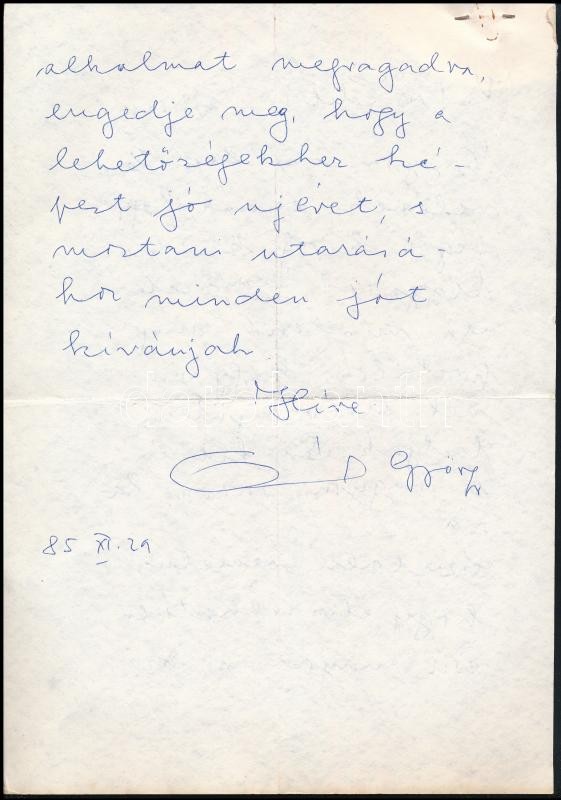 alkalmat megragadva,
engedje meg, hogy a
lehetőségekhez ké-
pest jó ujévet, s
mostani utazásá-
hoz minden jót
kívánjak
Híve
György
85 XI. 29